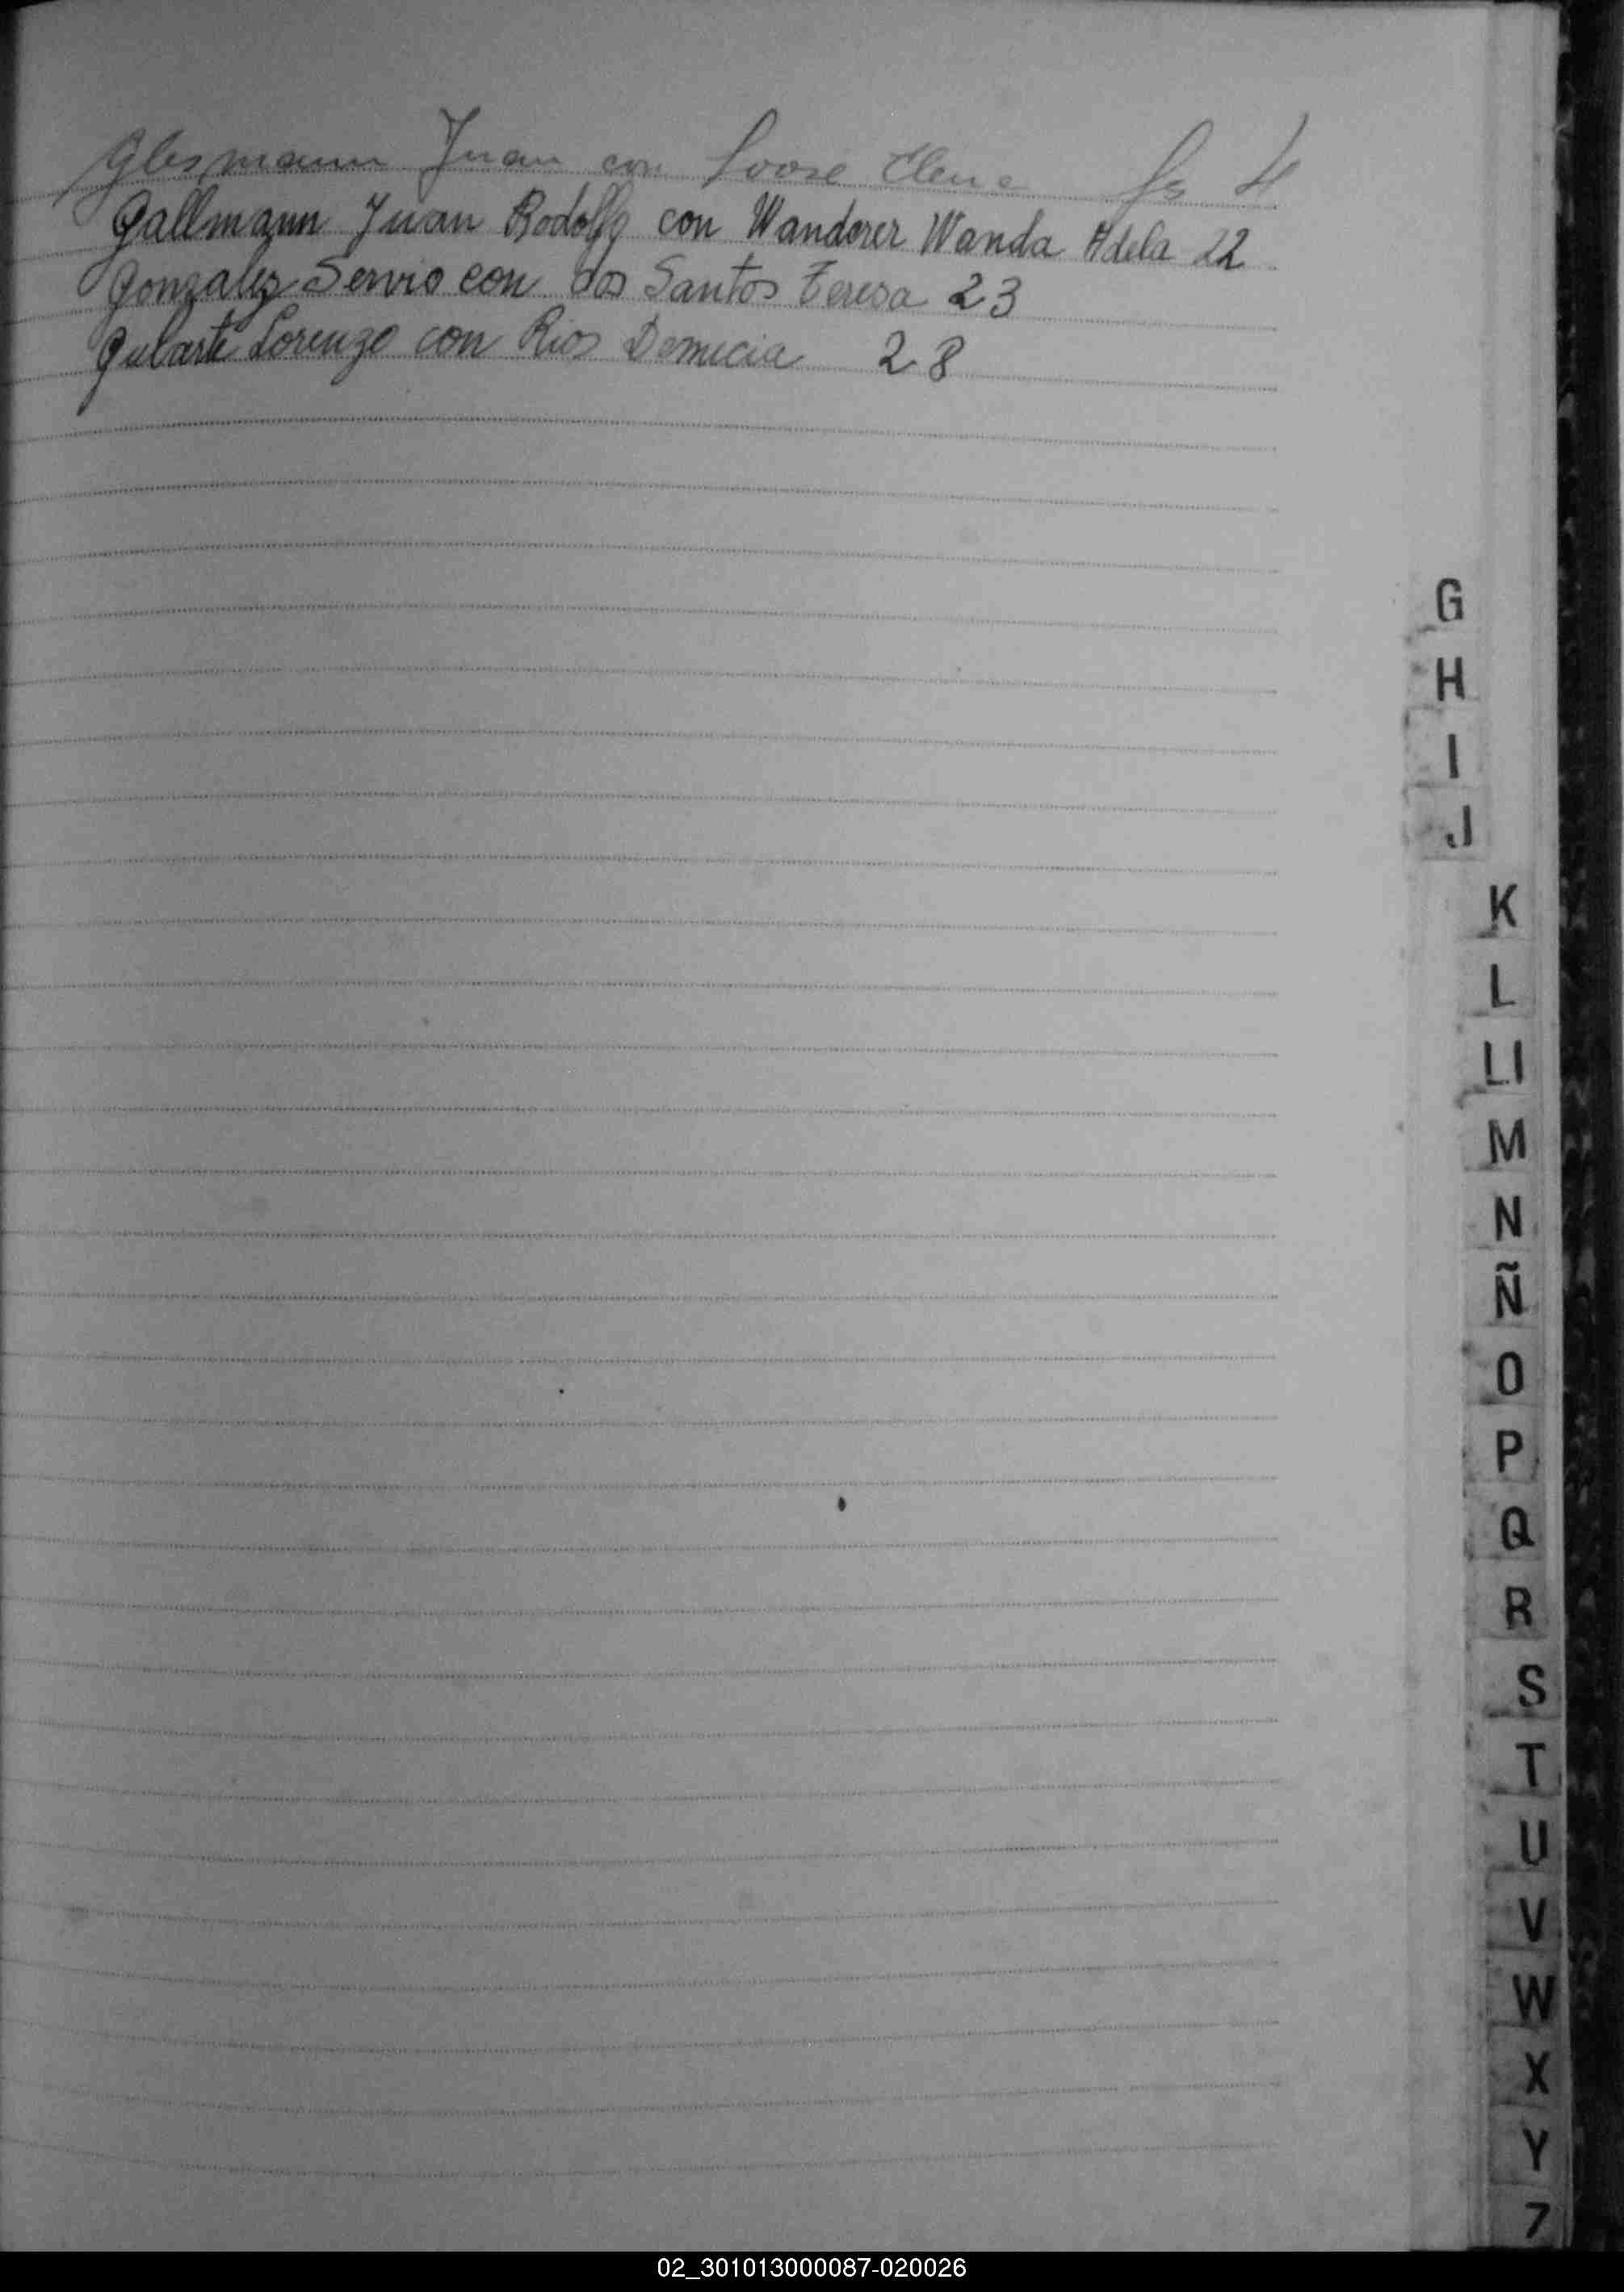 Glesmann Juan con Loose Elena fs 4
Gallmann Juan Rodolfo con Wanderer Wanda Adela 22
Gonzalez Servio con dos Santos Teresa 23
Gularte Lorenzo con Rios Demecia 28
G
H
I
J
K
L
Ll
M
N
Ñ
O
P
Q
R
S
T
U
V
W
X
Y
Z
02_301013000087-020026